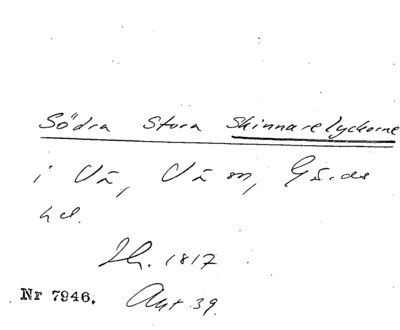 Södra Stora Skinnarelyckorne
i Vä, Vä sn, Gä. ds
hd.
Sk. 1817
Nr 7946. Akt 39.